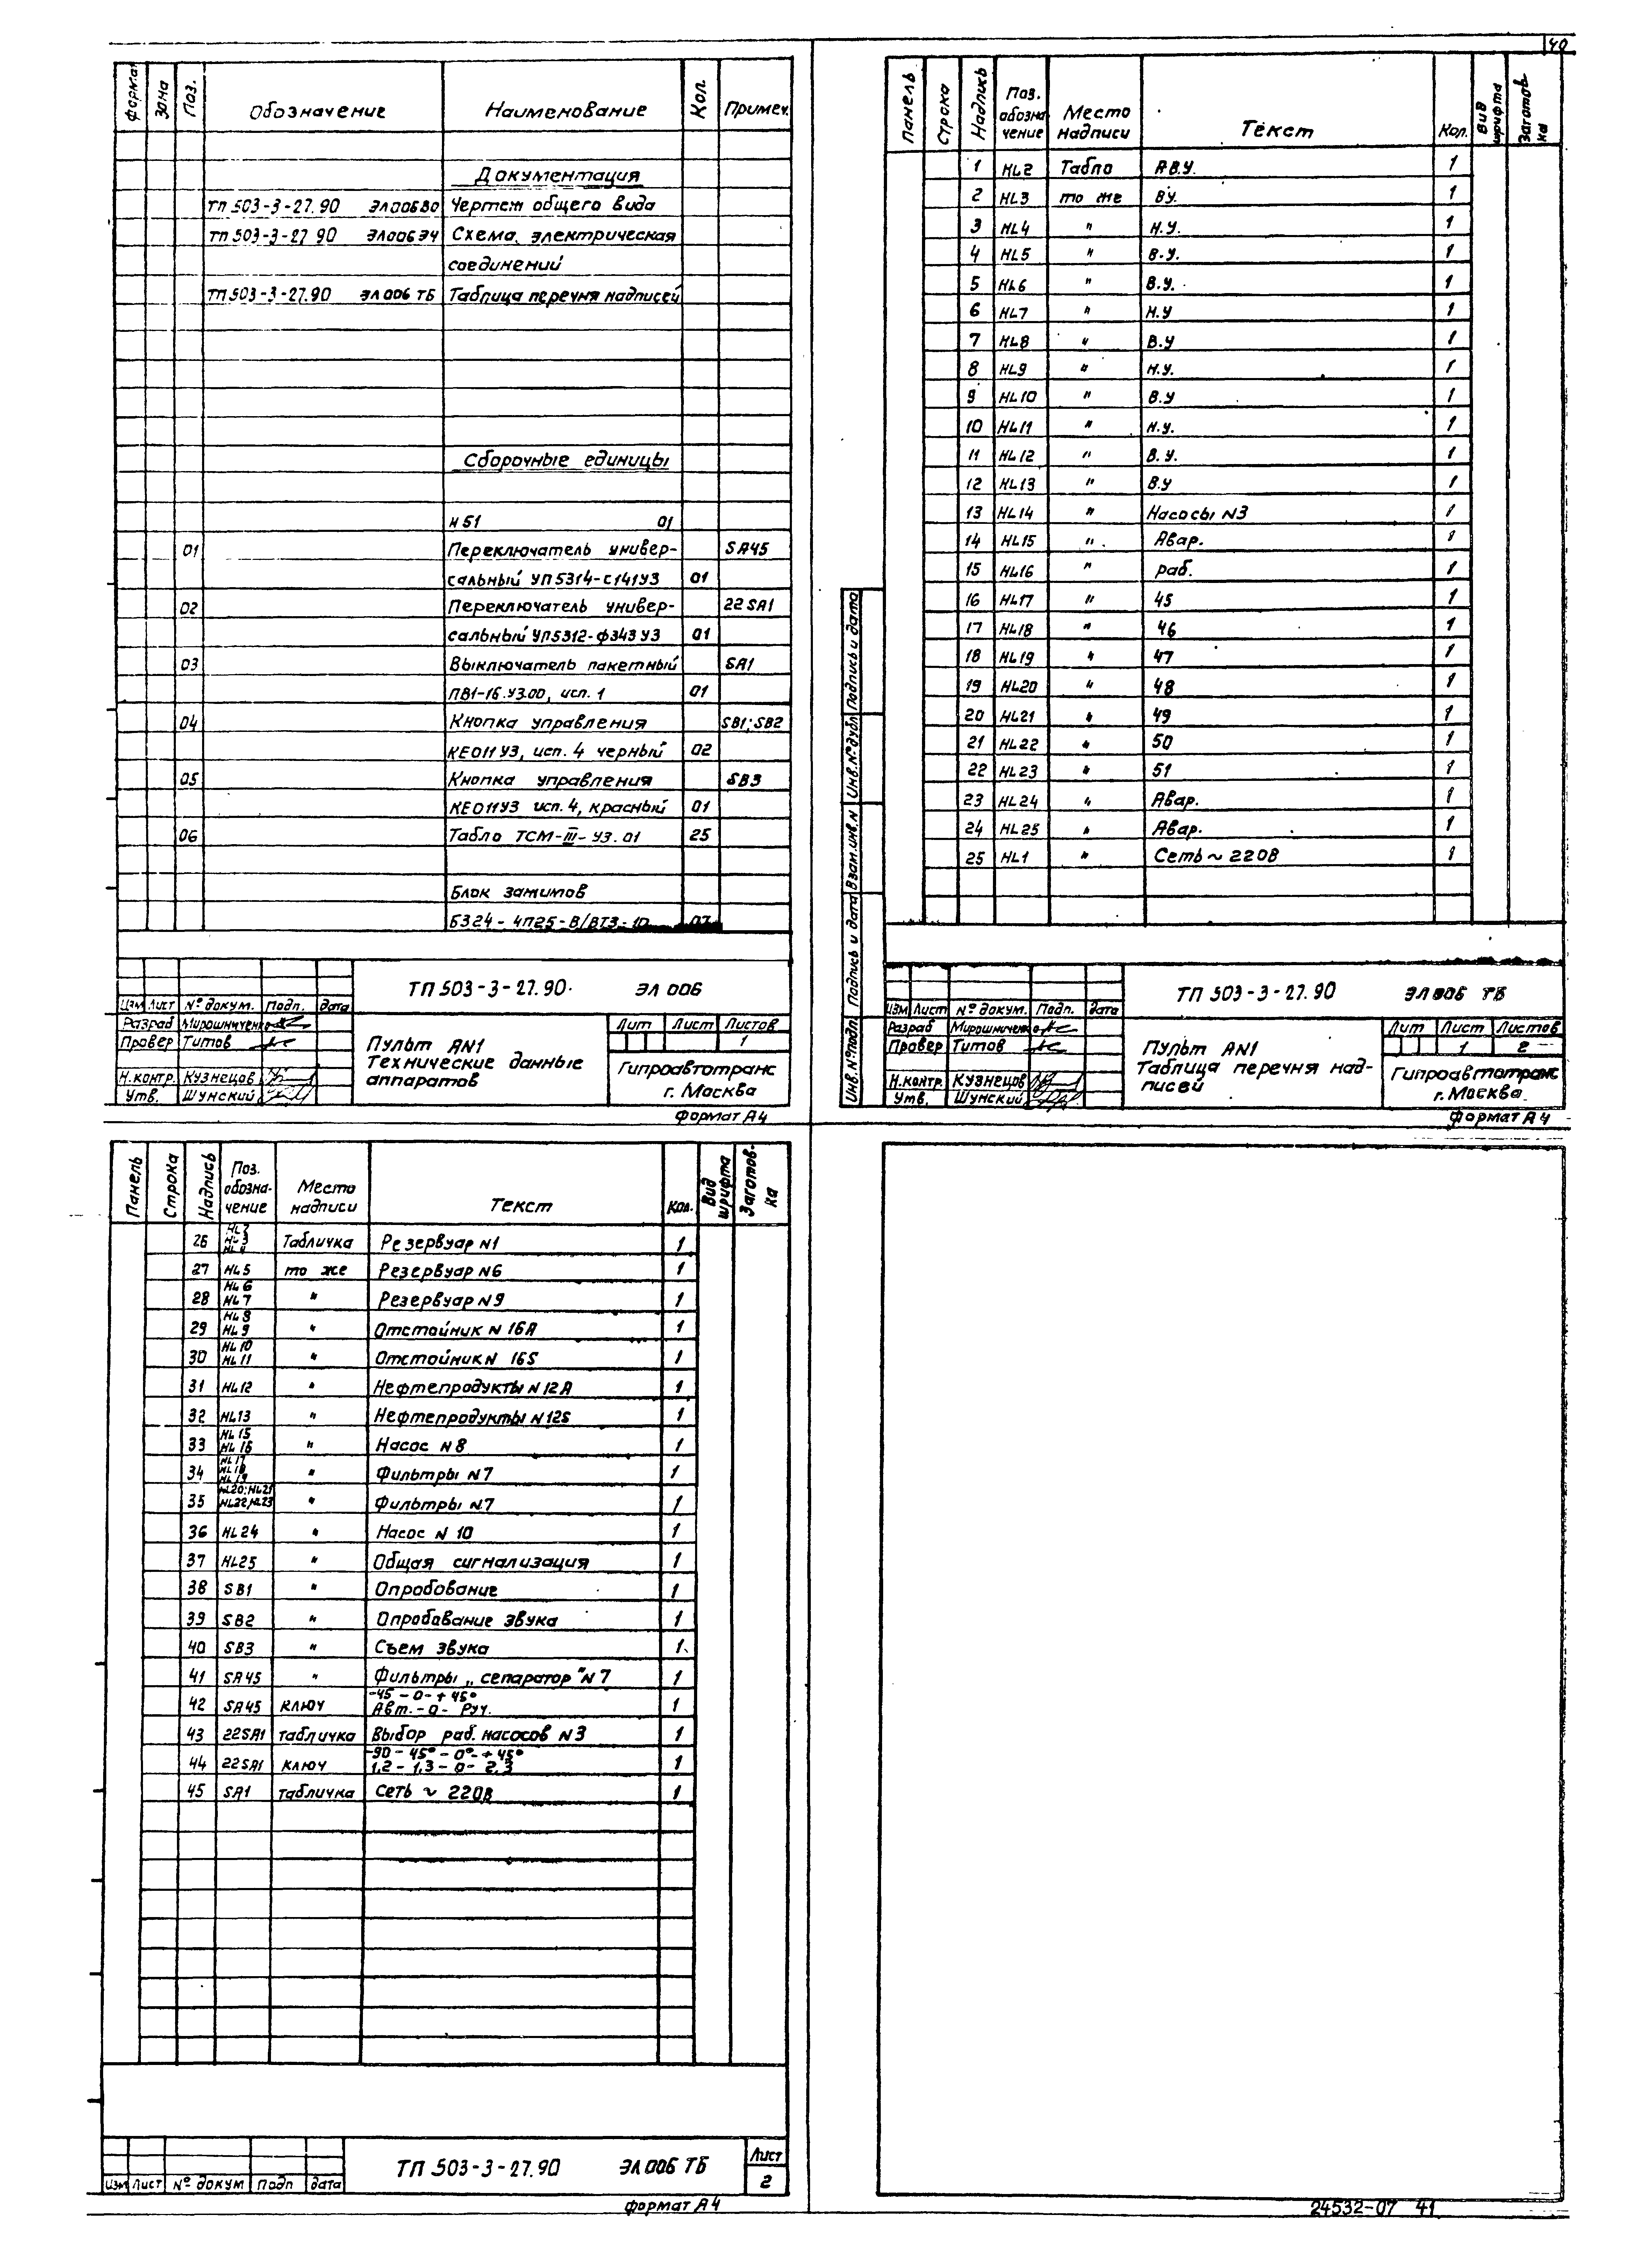 40
Формат Зона Поз. Обозначение Наименование Кол. Примеч.
Документация
ТП 503-3-27.90 ЭЛ006В0 Чертеж общего вида
ТП 503-3-27.90 ЭЛ006Э4 Схема электрическая
соединений
ТП 503-3-27.90 ЭЛ006 ТБ Таблица перечня надписей
Сборочные единицы
И 51 01
01 Переключатель универ- SA45
сальный УП5314-С141У3 01
02 Переключатель универ- 22SA1
сальный УП5312-Ф343У3 01
03 Выключатель пакетный SA1
ПВ1-16.У3.00, исп. 1 01
04 Кнопка управления SB1; SB2
КЕ011У3, исп. 4 черный 02
05 Кнопка управления SB3
КЕ011У3 исп. 4, красный 01
06 Табло ТСМ-III-У3.01 25
Блок зажимов
Б324-4П25-В/ВТ3-10 07
ТП 503-3-27.90 ЭЛ 006
Изм Лист № докум. Подп. дата
Разраб Мирошниченко
Провер Титов
Н.контр. Кузнецов
Утв. Шунский
Пульт AN1
Технические данные
аппаратов
Лит Лист Листов
1
Гипроавтотранс
г. Москва
Формат А4
Панель Строка Надпись Поз. обозна-чение Место надписи Текст Кол. Вид шрифта Заготов ка
1 HL2 Табло А.В.У. 1
2 HL3 то же В.У. 1
3 HL4 " Н.У. 1
4 HL5 " В.У. 1
5 HL6 " В.У. 1
6 HL7 " Н.У 1
7 HL8 " В.У 1
8 HL9 " Н.У. 1
9 HL10 " В.У 1
10 HL11 " Н.У. 1
11 HL12 " В.У. 1
12 HL13 " В.У 1
13 HL14 " Насосы N3 1
14 HL15 " Авар. 1
15 HL16 " раб. 1
16 HL17 " 45 1
17 HL18 " 46 1
18 HL19 " 47 1
19 HL20 " 48 1
20 HL21 " 49 1
21 HL22 " 50 1
22 HL23 " 51 1
23 HL24 " Авар. 1
24 HL25 " Авар. 1
25 HL1 " Сеть ~ 220В 1
Инв.№подл. Подпись и дата Взам.инв.N Инв.№дубл Подпись и дата
ТП 503-3-27.90 ЭЛ 006 ТБ
Изм Лист № докум. Подп. дата
Разраб Мирошниченко
Провер Титов
Н.контр. Кузнецов
Утв. Шунский
Пульт AN1
Таблица перечня над-
писей
Лит Лист Листов
1 2
Гипроавтотранс
г. Москва
Формат А4
Панель Строка Надпись Поз. обозна-чение Место надписи Текст Кол. Вид шрифта Заготов-ка
26 HL2 HL3 HL4 Табличка Резервуар N1 1
27 HL5 то же Резервуар N6 1
28 HL6 HL7 " Резервуар N9 1
29 HL8 HL9 " Отстойник N 16А 1
30 HL10 HL11 " Отстойник N 16Б 1
31 HL12 " Нефтепродукты N12А 1
32 HL13 " Нефтепродукты N12Б 1
33 HL15 HL16 " Насос N8 1
34 HL17 HL18 HL19 " Фильтры N7 1
35 HL20; HL21 HL22; HL23 " Фильтры N7 1
36 HL24 " Насос N 10 1
37 HL25 " Общая сигнализация 1
38 SB1 " Опробование 1
39 SB2 " Опробование звука 1
40 SB3 " Съем звука 1
41 SA45 " Фильтры „сепаратор" N7 1
42 SA45 ключ -45 - 0 - + 45° Авт. - 0 - Руч. 1
43 22SA1 табличка Выбор раб. насосов N3 1
44 22SA1 ключ -90 - 45° - 0° - + 45° 1,2 - 1,3 - 0 - 2,3 1
45 SA1 табличка сеть ~ 220В 1
Изм Лист № докум Подп дата
ТП 503-3-27.90 ЭЛ006 ТБ
Лист
2
Формат А4
24532-07 41